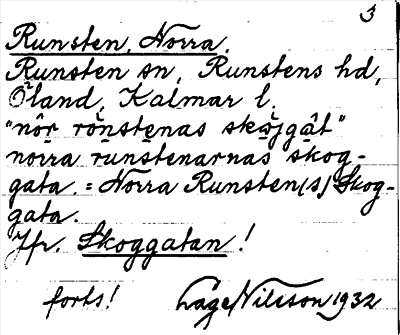 3
Runsten, Norra.
Runsten sn, Runstens hd,
Öland, Kalmar l.
"nôr rônstenas skôjgât"
norra runstenarnas skog-
gata. = Norra Runsten(s) Skog-
gata.
Jfr. Skoggatan!
forts! Låge Nilsson 1932